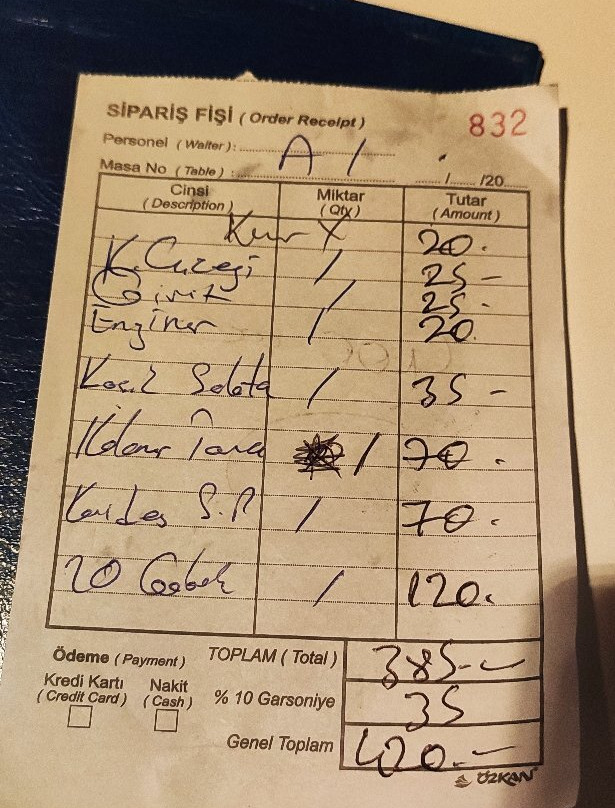 SİPARİŞ FİŞİ ( Order Receipt ) 832
Personel ( Waiter ):
Masa No ( Table ) : A / / /20
Cinsi Miktar Tutar
( Description ) ( Qty ) ( Amount )
Kuv X 20.
K. Çiçeği / 25 -
Girit / 25 -
Enginar / 20
Salata / 35 -
Kalamar Tava / 70 .
Karides / 70 .
20 Göbek / 120.
Ödeme ( Payment ) TOPLAM ( Total ) 385.-
Kredi Kartı Nakit
( Credit Card ) ( Cash ) % 10 Garsoniye 35
Genel Toplam 420.-
ÖZKAN